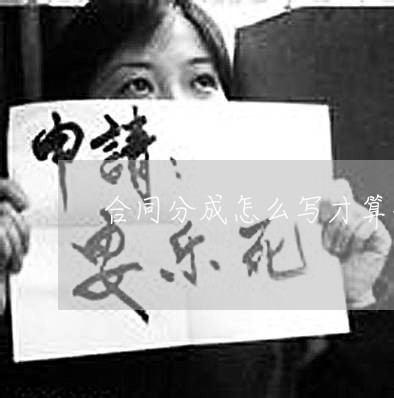 申請：
合同分成怎么写才算
安乐死